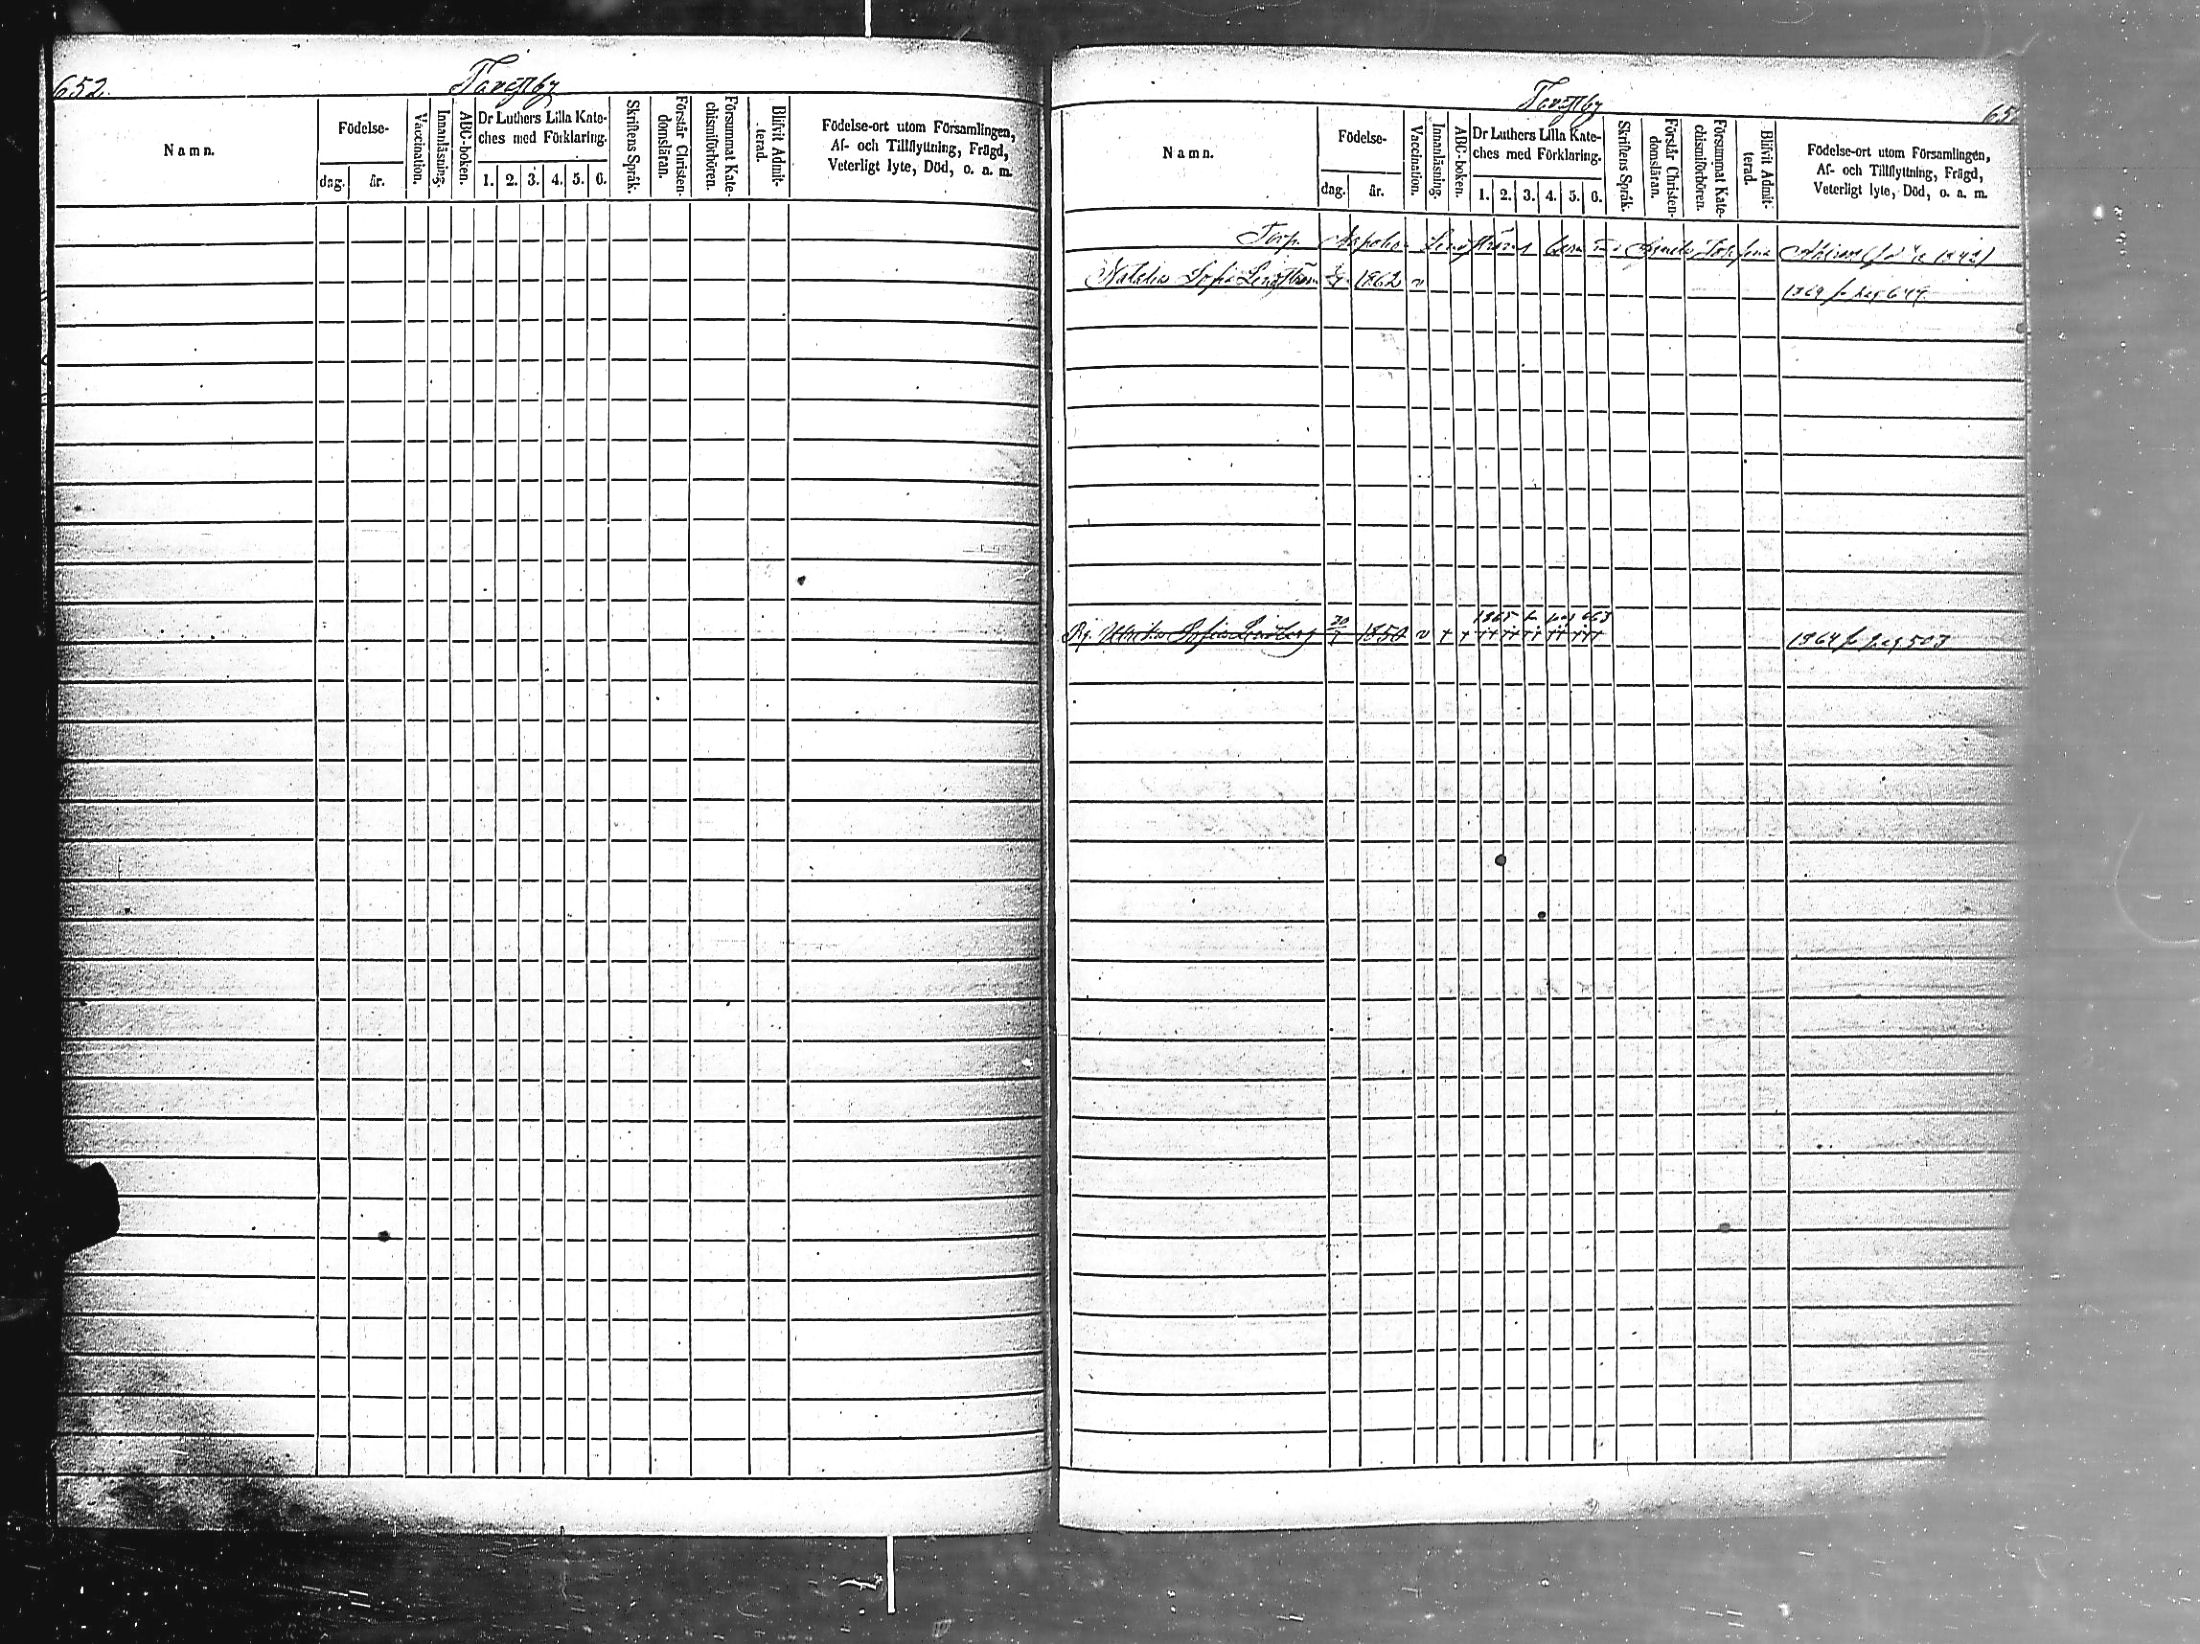 652.
Namn.
Födelse-
dag.
år.
Vaccination.
Innanläsning.
ABC-boken.
Dr Luthers Lilla Kate-
ches med Förklaring.
1. 2. 3. 4. 5. 6.
Skriftens Språk.
Förstår Christen-
domsläran.
Försummat Kate-
chismiförhören.
Blifvit Admit-
terad.
Födelse-ort utom Församlingen,
Af- och Tillflyttning, Frägd,
Veterligt lyte, Död, o. a. m.
65
Namn.
Födelse-
dag.
år.
Vaccination.
Innanläsning.
ABC-boken.
Dr Luthers Lilla Kate-
ches med Förklaring.
1. 2. 3. 4. 5. 6.
Skriftens Språk.
Förstår Christen-
domsläran.
Försummat Kate-
chismiförhören.
Blifvit Admit-
terad.
Födelse-ort utom Församlingen,
Af- och Tillflyttning, Frägd,
Veterligt lyte, Död, o. a. m.
Torp.
Natalia Sofia 1862 v
1869 fr pag 649.
1865 fr pag 663
Pig. Sofia Lindberg 1850 v + +
1864 fr pag 503